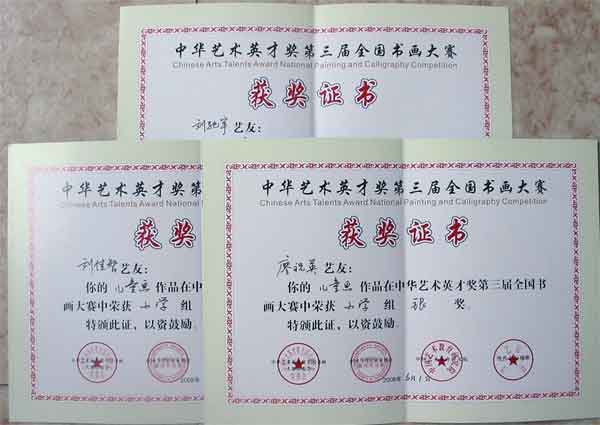 中华艺术英才奖第三届全国书画大赛
Chinese Arts Talents Award National Painting and Calligraphy Competition
获奖证书
艺友：
中华艺术英才奖第
Chinese Arts Talents Award National
获奖
刘佳智艺友：
你的 儿童画 作品在中
画大赛中荣获 小学 组
特颁此证，以资鼓励。
2008年
中华艺术英才奖第三届全国书画大赛
Chinese Arts Talents Award National Painting and Calligraphy Competition
获奖证书
艺友：
你的 儿童画 作品在中华艺术英才奖第三届全国书
画大赛中荣获 小学 组 银 奖。
特颁此证，以资鼓励。
2008年